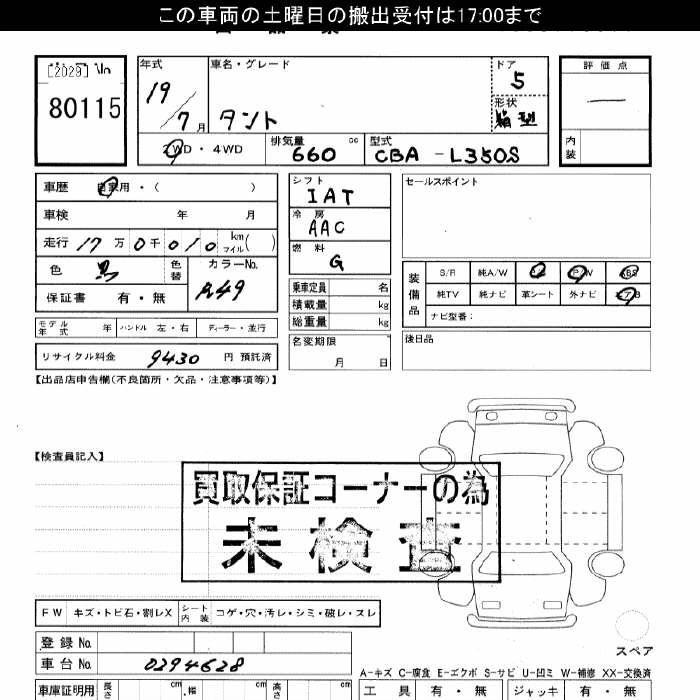 この車両の土曜日の搬出受付は17:00まで
[2029] No
80115
年式 車名・グレード ドア 評価点
19/7月 タント 5
形状 箱型
2WD・4WD 排気量 660 cc 型式 CBA-L350S
内装
車歴 自家用・( )
車検 年 月
走行 17万0千010 km マイル( )
色 黒 色替 カラーNo. A49
保証書 有・無
モデル年式 年 ハンドル 左・右 ディーラー・並行
リサイクル料金 9430 円 預託済
シフト IAT
冷房 AAC
燃料 G
乗車定員 名
積載量 kg
総重量 kg
名変期限
月 日
セールスポイント
装備品 S/R 純A/W P/S P/W ABS
純TV 純ナビ 革シート 外ナビ エアB
ナビ型番:
後日品
【出品店申告欄(不良箇所・欠品・注意事項等)】
【検査員記入】
買取保証コーナーの為
未検査
FW キズ・トビ石・割レX シート内装 コゲ・穴・汚レ・シミ・破レ・スレ
スペア
登録No.
車台No. 0294628
A-キズ C-腐食 E-エクボ S-サビ U-凹ミ W-補修 XX-交換済
車庫証明用 長さ cm 幅 cm 高さ cm 工具 有・無 ジャッキ 有・無